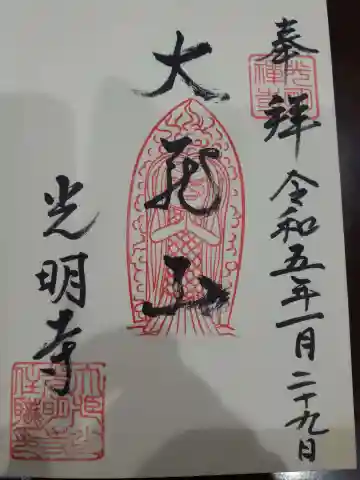 奉拝 令和五年一月二十九日
大龍山
光明寺